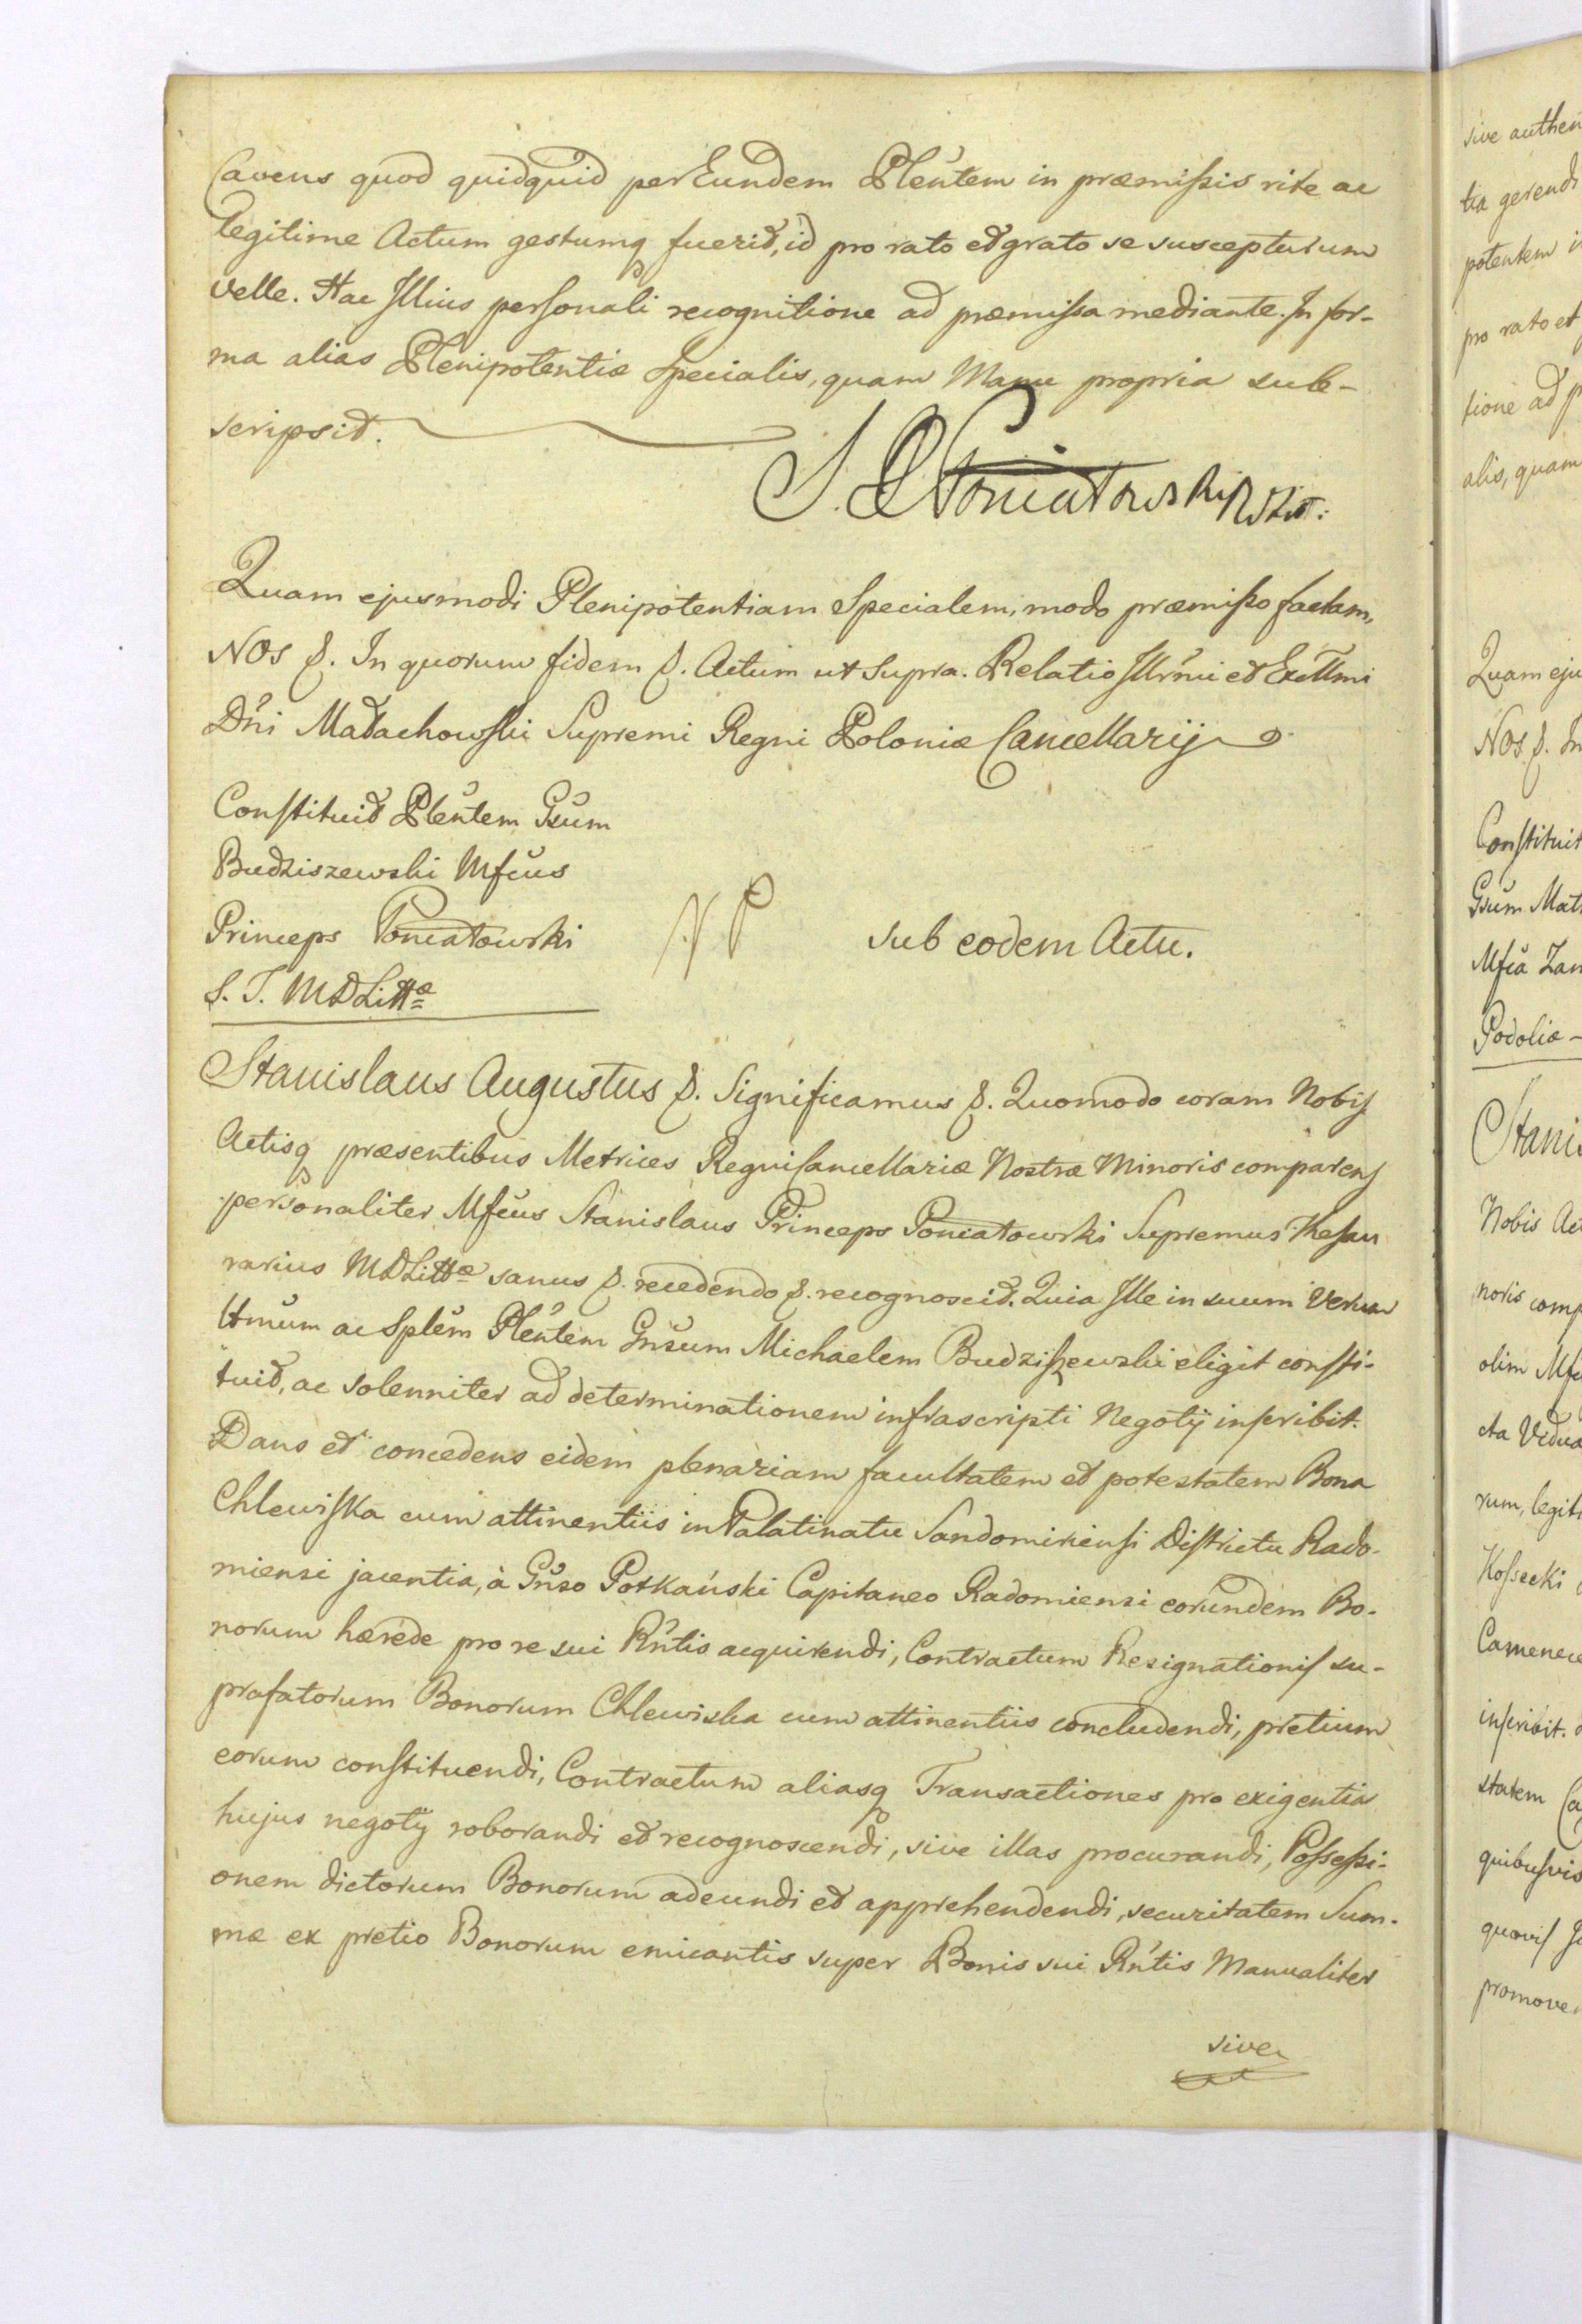 Cavens quod quidquid per Eundem Plentem in præmissis rite ac
legitime Actum gestumq fuerit, id pro rato et grato se suscepturum
velle. Hac Illius personali recognitione ad præmissa mediante. In for-
ma alias Plenipotentiæ Specialis, quam Manu propria sub-
scripsit.
S. P. Poniatowski
Quam ejusmodi Plenipotentiam Specialem, modo præmisso factam,
NOS &. In quorum fidem &. Actum ut Supra. Relatio Illrmi et Excllmi
Dni Małachowski Supremi Regni Poloniæ Cancellarij
Constituit Plentem Gsum
Budziszewski Mfcus
Princeps Poniatowski
S. T. MDLittæ
sub eodem Actu.
Stanislaus Augustus &. Significamus &. Quomodo coram Nobis
Actisq præsentibus Metrices Regni Cancellariæ Nostræ Minoris comparens
personaliter Mfcus Stanislaus Princeps Poniatowski Supremus Thesau
rarius MDLittæ sanus &. recedendo &. recognoscit. Quia Ille in suum Verum
Ltmum ac Splem Plentem Gnsum Michaelem Budziszewski eligit consti-
tuit, ac solenniter ad determinationem infrascripti Negotij inscribit.
Dans et concedens eidem plenariam facultatem et potestatem Bona
Chlewiska cum attinentiis in Palatinatu Sandomiriensi Districtu Rado-
miensi jacentia, à Gnso Potkański Capitaneo Radomiensi eorundem Bo-
norum hærede pro re sui Rntis acquirendi, Contractum Resignationis su-
prafatorum Bonorum Chlewiska cum attinentiis concludendi, pretium
eorum constituendi, Contractum aliasq Transactiones pro exigentia
hujus negotij roborandi et recognoscendi, sive illas procurandi, Possessi-
onem dictorum Bonorum adeundi et apprehendendi, securitatem Sum-
mæ ex pretio Bonorum emicantis super Bonis sui Rntis Manualiter
sive
sive authen
tia gerendi
potentem
pro rato et
tione ad p
alis, quam
Quam eju
NOS &. In
Constituit
Gsum Mat
Mfca Zam
Podoliæ
Stani
Nobis Ac
noris comp
olim Mfc
cta Vidua
rum, legit
Kossecki
Camenec
inscribit.
statem
quibusvis
quovis
promove